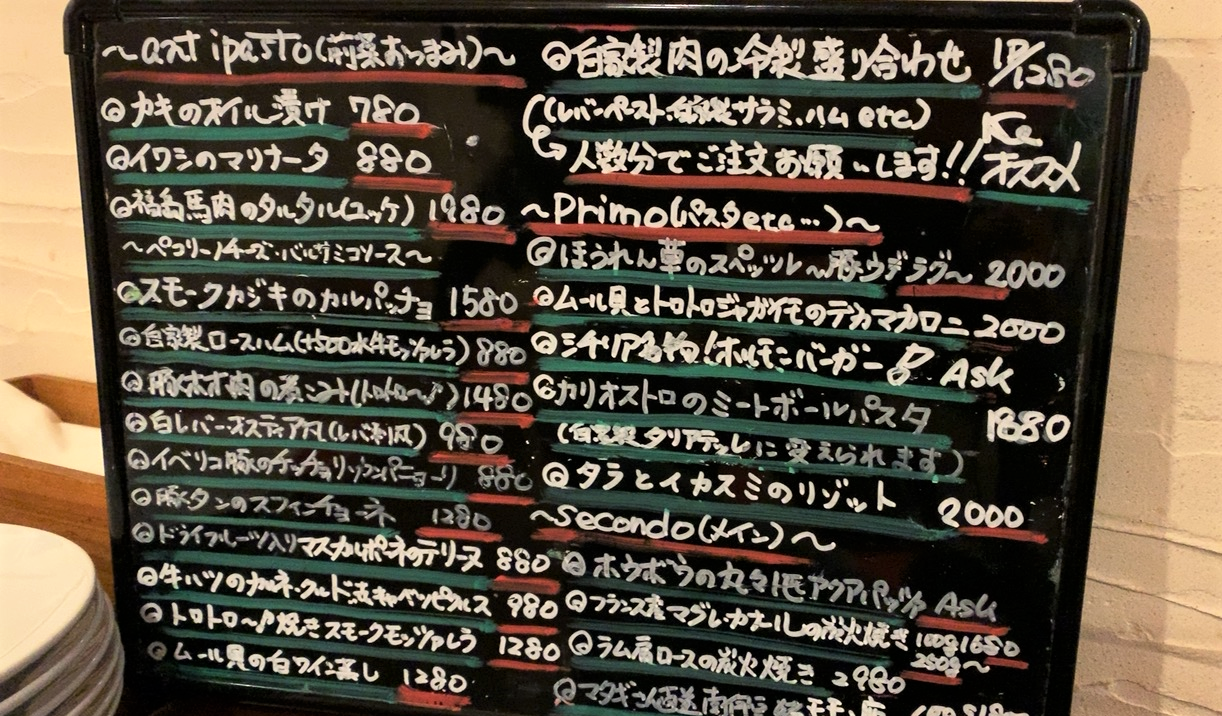 ～antipasto(前菜おつまみ)～
◎カキのオイル漬け 780
◎イワシのマリナータ 880
◎福島馬肉のタルタル(ユッケ) 1980
～ペコリーノチーズ・バルサミコソース～
◎スモークカジキのカルパッチョ 1580
◎自家製ロースハム(+500水牛モッツァレラ) 880
◎豚ホホ肉の煮こみ(トロトロ～♪) 1480
◎白レバーオスティア風(レバ刺風) 980
◎イベリコ豚のチッチョリ 880
◎豚タンのスフィンチョーネ 1280
◎ドライフルーツ入りマスカルポーネのテリーヌ 880
◎牛ハツのカルネ・クルド・キャベツピクルス 980
◎トロトロ～♪焼きスモークモッツァレラ 1280
◎ムール貝の白ワイン蒸し 1280
◎自家製肉の冷製盛り合わせ 1P/1280
(レバーペースト.自家製サラミ.ハム etc)
人数分でご注文お願いします!!
Ke
オススメ
～Primo(パスタetc…)～
◎ほうれん草のスペッツレ～豚ウデラグ～ 2000
◎ムール貝とトロトロジャガイモのテカマカロニ 2000
◎シチリア名物!ホルモンバーガー Ask
◎カリオストロのミートボールパスタ 1880
(自家製タリアテッレに変えられます)
◎タラとイカスミのリゾット 2000
～Secondo(メイン)～
◎ホウボウの丸々1匹アクアパッツァ Ask
◎フランス産マグレ・カナールの炭火焼き 100g1650
250g～
◎ラム肩ロースの炭火焼き 2980
◎マタギ直送